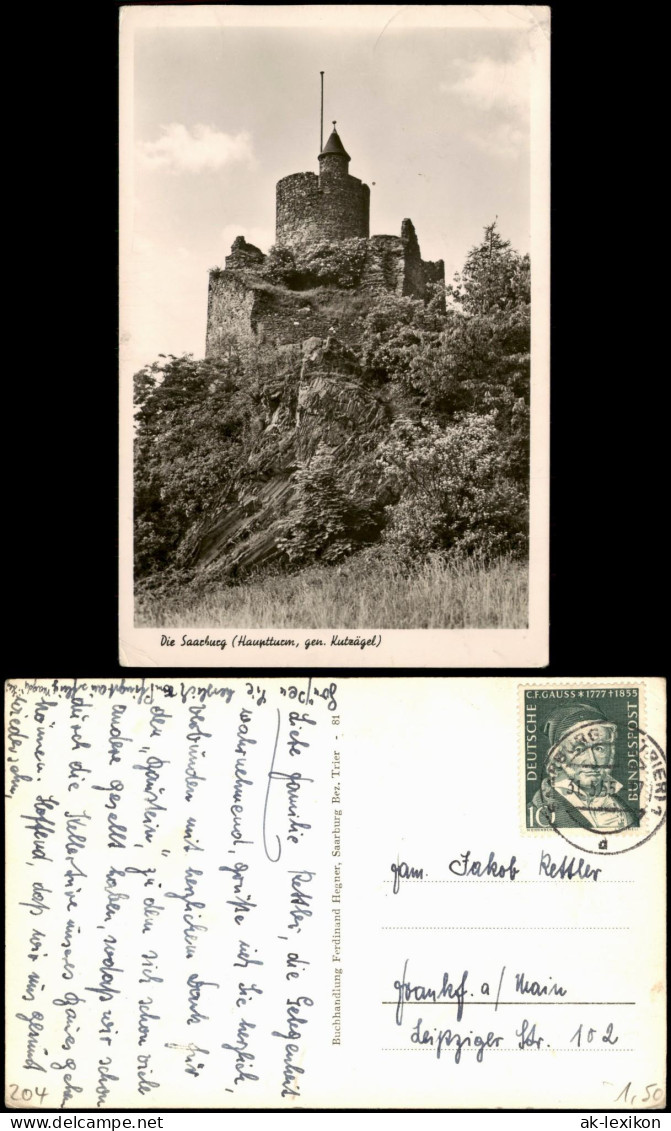 Die Saarburg (Hauptturm, gen. Kutzägel)
Liebe Familie Kettler, die Gelegenheit
wahrnehmend, grüße ich Sie herzlich,
verbunden mit herzlichem Dank für
den "Faustein", zu dem sich schon viele
andere gesellt haben, sodaß wir schon
durch die Kellertüre unseres Hauses gehen
können. Hoffend, daß wir uns gesund
wiedersehn,
Buchhandlung Ferdinand Hegner, Saarburg Bez. Trier - 81
C.F.GAUSS * 1777 † 1855
DEUTSCHE
BUNDESPOST
10
SAARBURG (BZ TRIER) 1
31.5.55
d
Fam. Jakob Kettler
Frankf. a/Main
Leipziger Str. 102
204
1,50
ak-lexikon